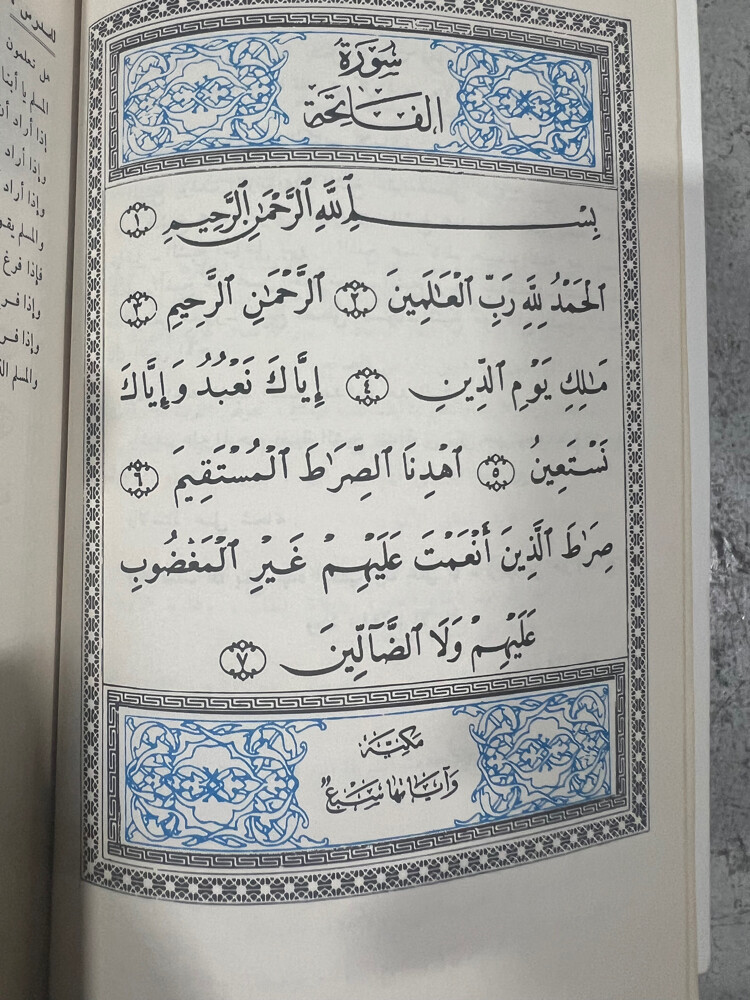 سُورَةُ
الفَاتِحَة
بِسْمِ ٱللَّهِ ٱلرَّحْمَٰنِ ٱلرَّحِيمِ ١
ٱلْحَمْدُ لِلَّهِ رَبِّ ٱلْعَالَمِينَ ٢ ٱلرَّحْمَٰنِ ٱلرَّحِيمِ ٣
مَٰلِكِ يَوْمِ ٱلدِّينِ ٤ إِيَّاكَ نَعْبُدُ وَإِيَّاكَ
نَسْتَعِينُ ٥ ٱهْدِنَا ٱلصِّرَٰطَ ٱلْمُسْتَقِيمَ ٦
صِرَٰطَ ٱلَّذِينَ أَنْعَمْتَ عَلَيْهِمْ غَيْرِ ٱلْمَغْضُوبِ
عَلَيْهِمْ وَلَا ٱلضَّآلِّينَ ٧
مَكِّيَّة
وَآيَاتُهَا سَبْعٌ
هل تعلمون
المسلم يا أبنا
إذا أراد أن
وإذا أراد
وإذا أراد
والمسلم يقو
فإذا فرغ
وإذا فر
وإذا فر